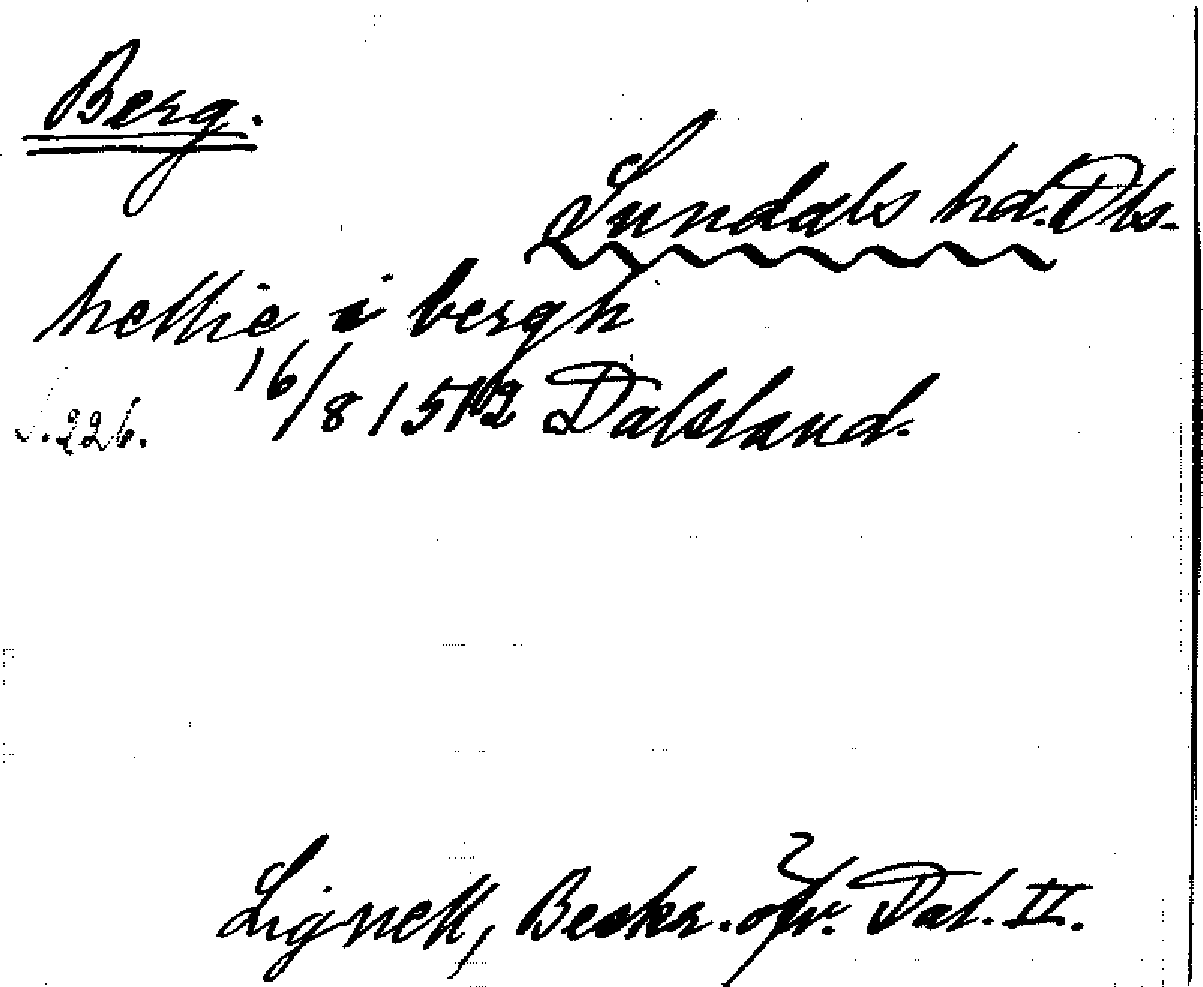 Berg.
Sundals hd. Dls.
hellie i bergh
S. 226. 16/8 1512 Dalsland.
Lignell, Beskr. öfv. Dal. II.